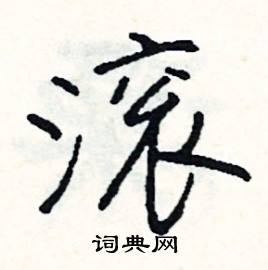 滚
词典网